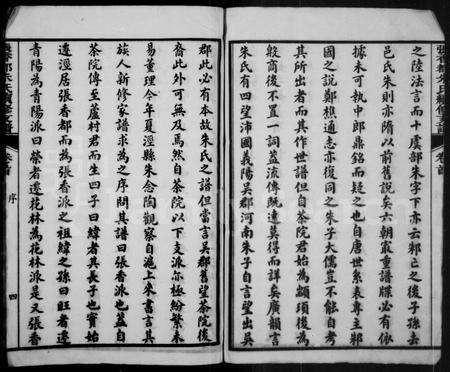 之陸法言而十虞部朱字下亦云邾亡之後子孫去
邑氏朱則亦隋以前舊說矣六朝最重譜牒必有依
據未可執中郎鼎銘而疑之也自唐世系表專主邾
國之說鄭樵通志亦復同之朱子大儒豈不能自考
其所出者而其作世譜但自茶院君始為顓頊後為
般裔後不置一詞蓋流傳既遠莫得而詳矣廣韻言
朱氏有四望沛國義陽吳郡河南朱子自言望出吳
郡此必有本故朱氏之譜但當言吳郡舊望茶院後
裔此外可無及焉然自茶院以下支派亦極紛繁未
易董理今年夏涇縣朱念陶觀察自滬上來書言其
族人新修家譜求為之序問其譜曰張香派也蓋自
茶院傳至蘆村君而生四子曰緯者其長子也實始
遷涇居張香都而為張香派之祖緯之孫曰旺者遷
青陽為青陽派曰蔡者遷花林為花林派是又張香
卷首
序
四